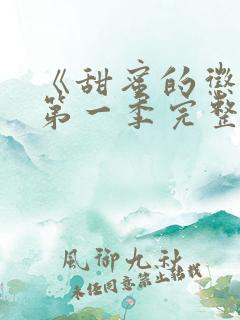 《甜蜜的懲
第一季完整
風御九秋
未经同意禁止转载